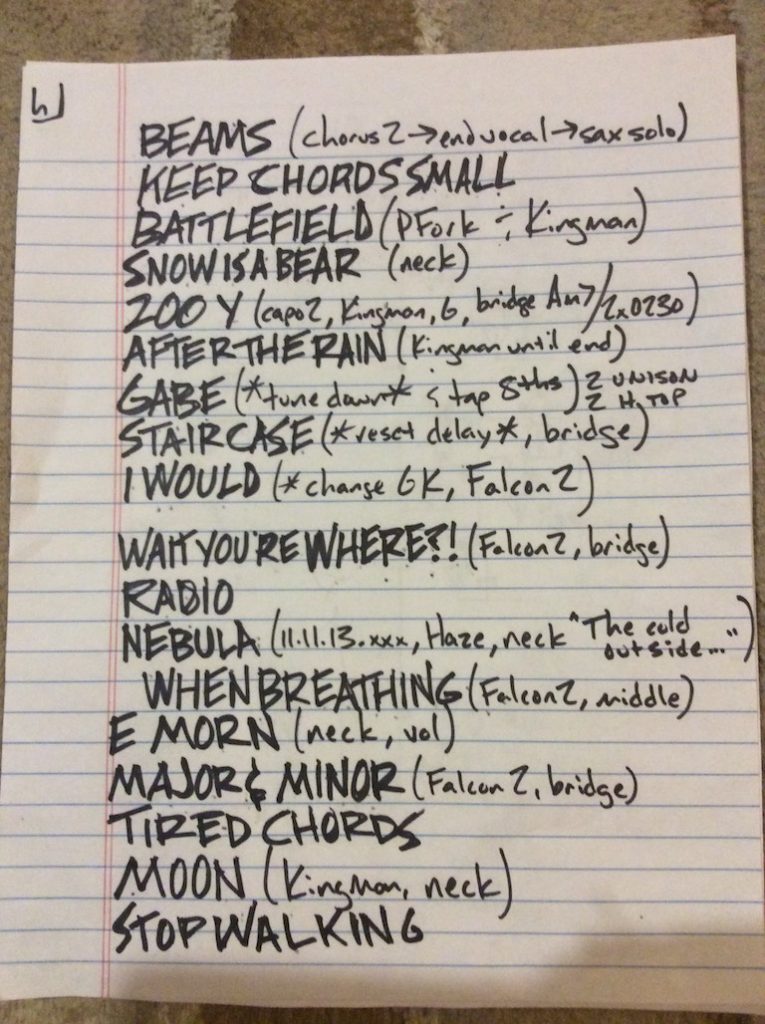 BEAMS (chorus 2 → end vocal → sax solo)
KEEP CHORDS SMALL
BATTLEFIELD (PFork ÷ Kingman)
SNOW IS A BEAR (neck)
ZOO Y (capo 2, Kingman, 6, bridge Am7/2x0230)
AFTER THE RAIN (Kingman until end)
GABE (*tune down* & tap 8ths) 2 UNISON
2 H, TOP
STAIRCASE (*reset delay*, bridge)
I WOULD (*change GK, Falcon 2)
WAIT YOU'RE WHERE?! (Falcon 2, bridge)
RADIO
NEBULA (11.11.13.xxx, Haze, neck "The cold
outside...")
WHEN BREATHING (Falcon 2, middle)
E MORN (neck, vol)
MAJOR & MINOR (Falcon 2, bridge)
TIRED CHORDS
MOON (Kingman, neck)
STOP WALKING